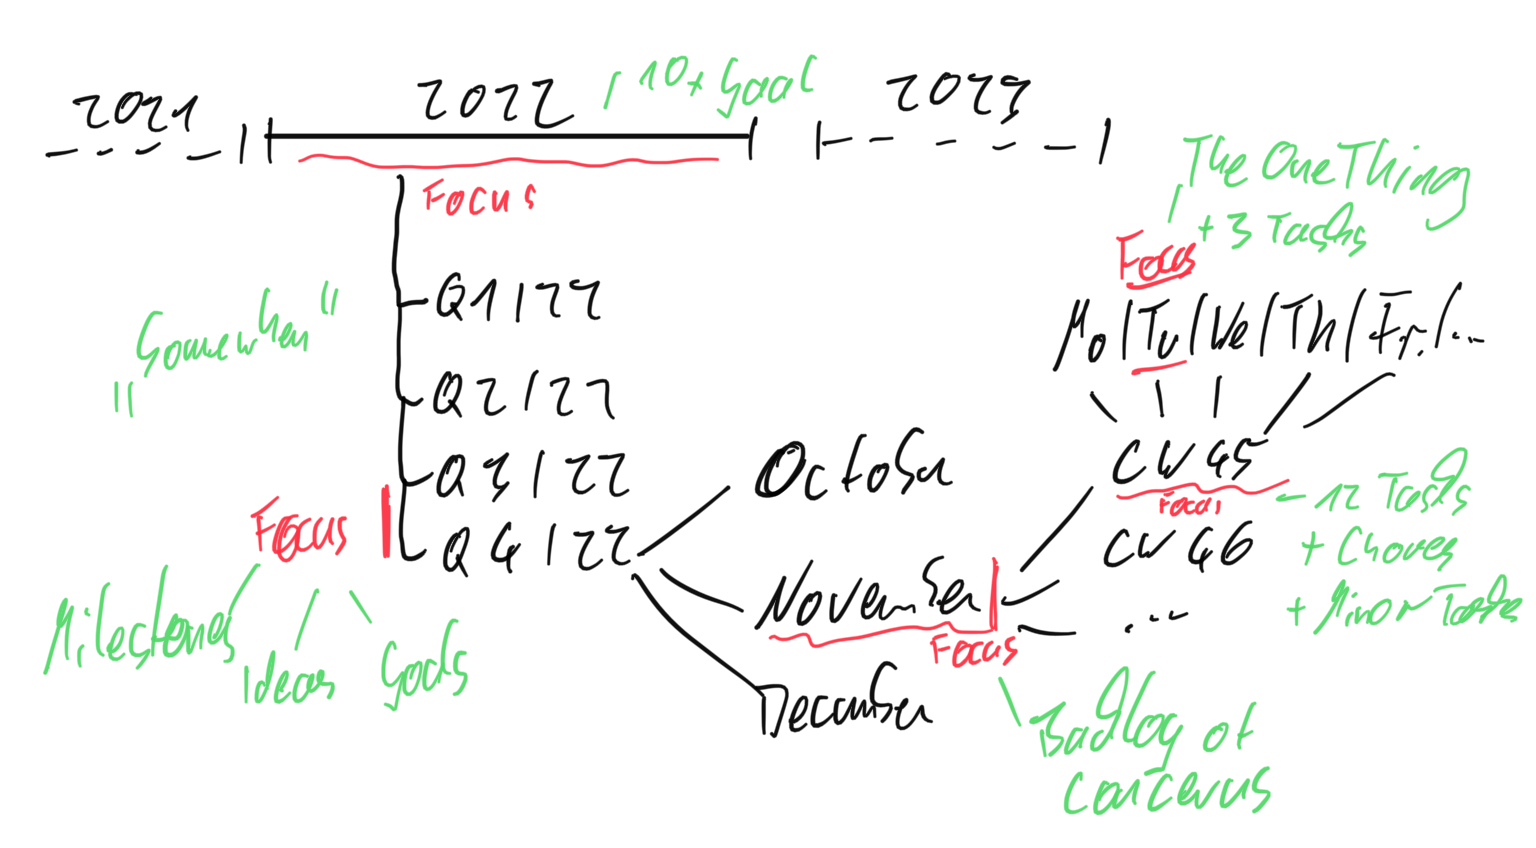 2021
2022
10+ Goal
2023
Focus
The One Thing
+ 3 Tasks
Focus
Mo/Tu/We/Th/Fr./...
"Somewhen"
Q1/22
Q2/22
Q3/22
Q4/22
Focus
Milestones
Ideas
Goals
October
November
Focus
December
CW 45
Focus
- 12 Tasks
CW 46
+ Chores
...
+ Minor Tasks
Backlog of
concerns